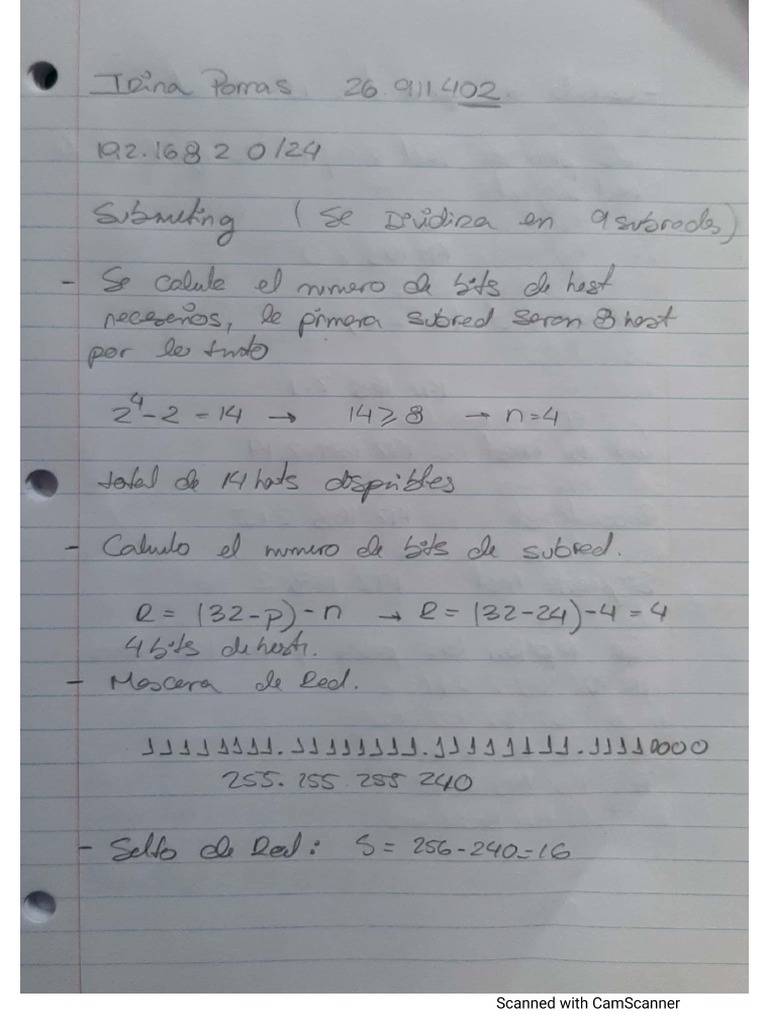 Irina Porras 26.911.402
192.168 2 0/24
Subneting (Se Dividira en 9 subredes)
- Se calule el numero de bits de host
necesarios, la primera subred seran 8 host
por lo tanto
2^4-2 = 14 → 14 ≥ 8 → n=4
total de 14 hosts disponibles
- Calculo el numero de bits de subred.
R = (32-p)-n → R = (32-24)-4 = 4
4 bits de host.
- Mascara de Red.
11111111.11111111.11111111.11110000
255.255 255 240
- Salto de Red: S = 256-240=16
Scanned with CamScanner